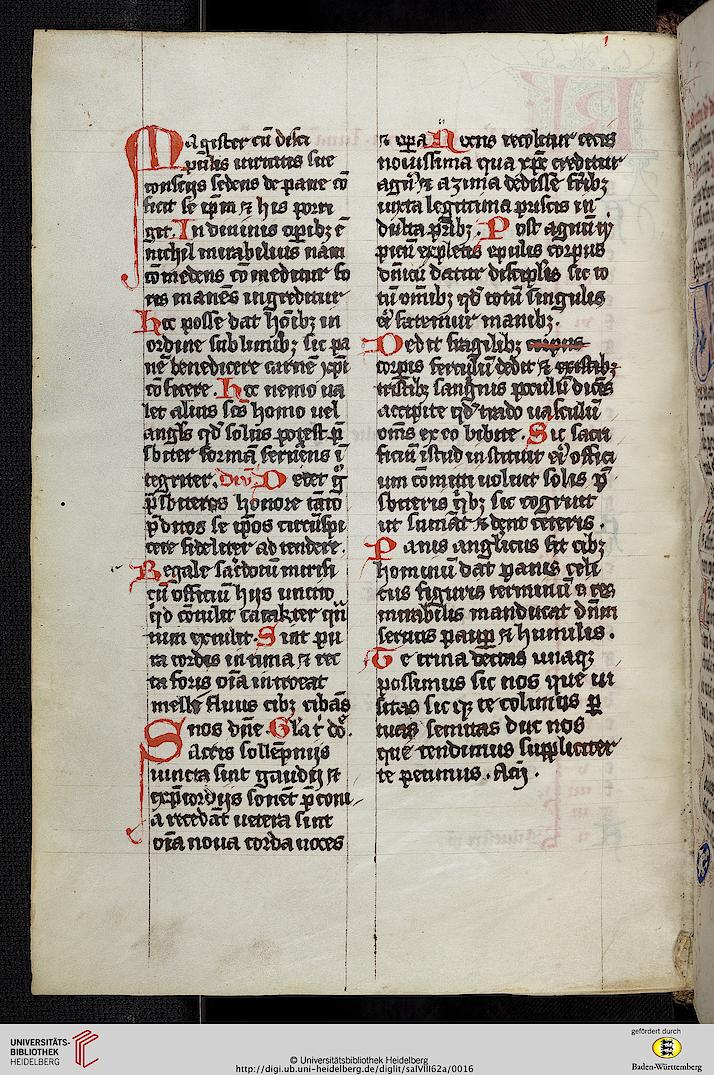 Magister cū disci
pulis uirtutis sue
consciis sedens de pane cō
ficit se ip̄m ⁊ his porri
git. In diuinis op̄ibꝫ ē
nichil mirabilius nam
comedens comeditur fo
ris manēs ingreditur
Hec posse dat hōībꝫ in
ordine sublimibꝫ sic pa
nē benedicere carnē xp̄i
cōficere. Hec nemo ua
let alius scs̄ homo uel
angl̄s qd̄ solus potest p̄
sbiter formā seruiens ī
tegriter. Decet g̊
p̄sbiteros honore tāto
p̄ditos se ip̄os circūspi
cere fideliter ad tendere.
Regale sac̄dotū mirifi
cū officiū hijs unctio
qd̄ contulit carakter qn̄
tum extulit. Sint pu
ra cordis intima ⁊ rec
ta foris oīa introeat
mellifluus cibꝫ cibās
nos dn̄e. Gl̄a t̄ dō.
Sacris sollēpnijs
iuncta sint gaudia ⁊
ex p̄cordijs sonēt p̄coni
a recedāt uetera sint
oīa noua corda uoces
⁊ op̄a Noctis recolitur cenis
nouissima qua xp̄c creditur
agnū ⁊ azima dedisse fr̄ibꝫ
iuxta legittima priscis in
dulta pr̄ibꝫ. Post agnum ty
picū expletis epulis corpus
dn̄icū datur discipl̄is sic to
tū om̄ibꝫ qd̄ totū singulis
ei fatemur manibꝫ.
Dedit fragilibꝫ corpus
corpis ferculū dedit ⁊ tristibꝫ
sangnis poculū dicēs
accipite qd̄ trado uasculū
om̄s ex eo bibite. Sic sacri
ficiū istud instituit ei offici
um comitti uoluit solis p̄
sbiteris qbꝫ sic cogruit
ut sumāt ⁊ dent ceteris.
Panis anglicus fit cibꝫ
hominū dat panis celi
cus figuris terminū o res
mirabilis manducat dn̄m
seruus paup̄ ⁊ humilis.
Te trina deitas unaqꝫ
possimus sic nos tue ui
sitas sic qꝫ te colimus p̄
tuas semitas duc nos
quē tendimus suppliciter
te petimus. Am̄.
UNIVERSITÄTS-
BIBLIOTHEK
HEIDELBERG
© Universitätsbibliothek Heidelberg
http://digi.ub.uni-heidelberg.de/diglit/salVIII62a/0016
gefördert durch
Baden-Württemberg